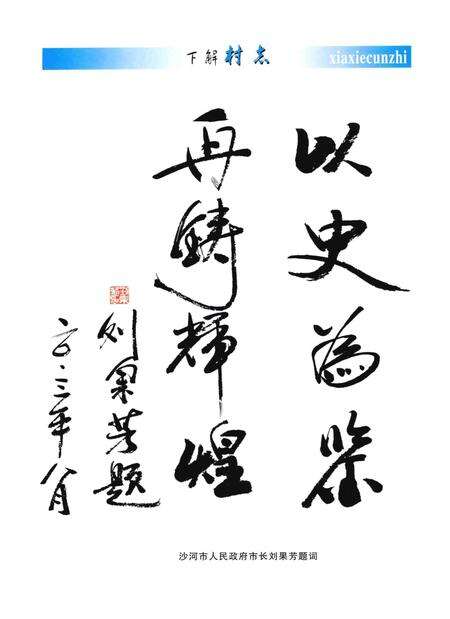 下解村志
xiaxiecunzhi
以史為鉴
再鑄輝煌
刘果芳题
二〇一三年八月
沙河市人民政府市长刘果芳题词